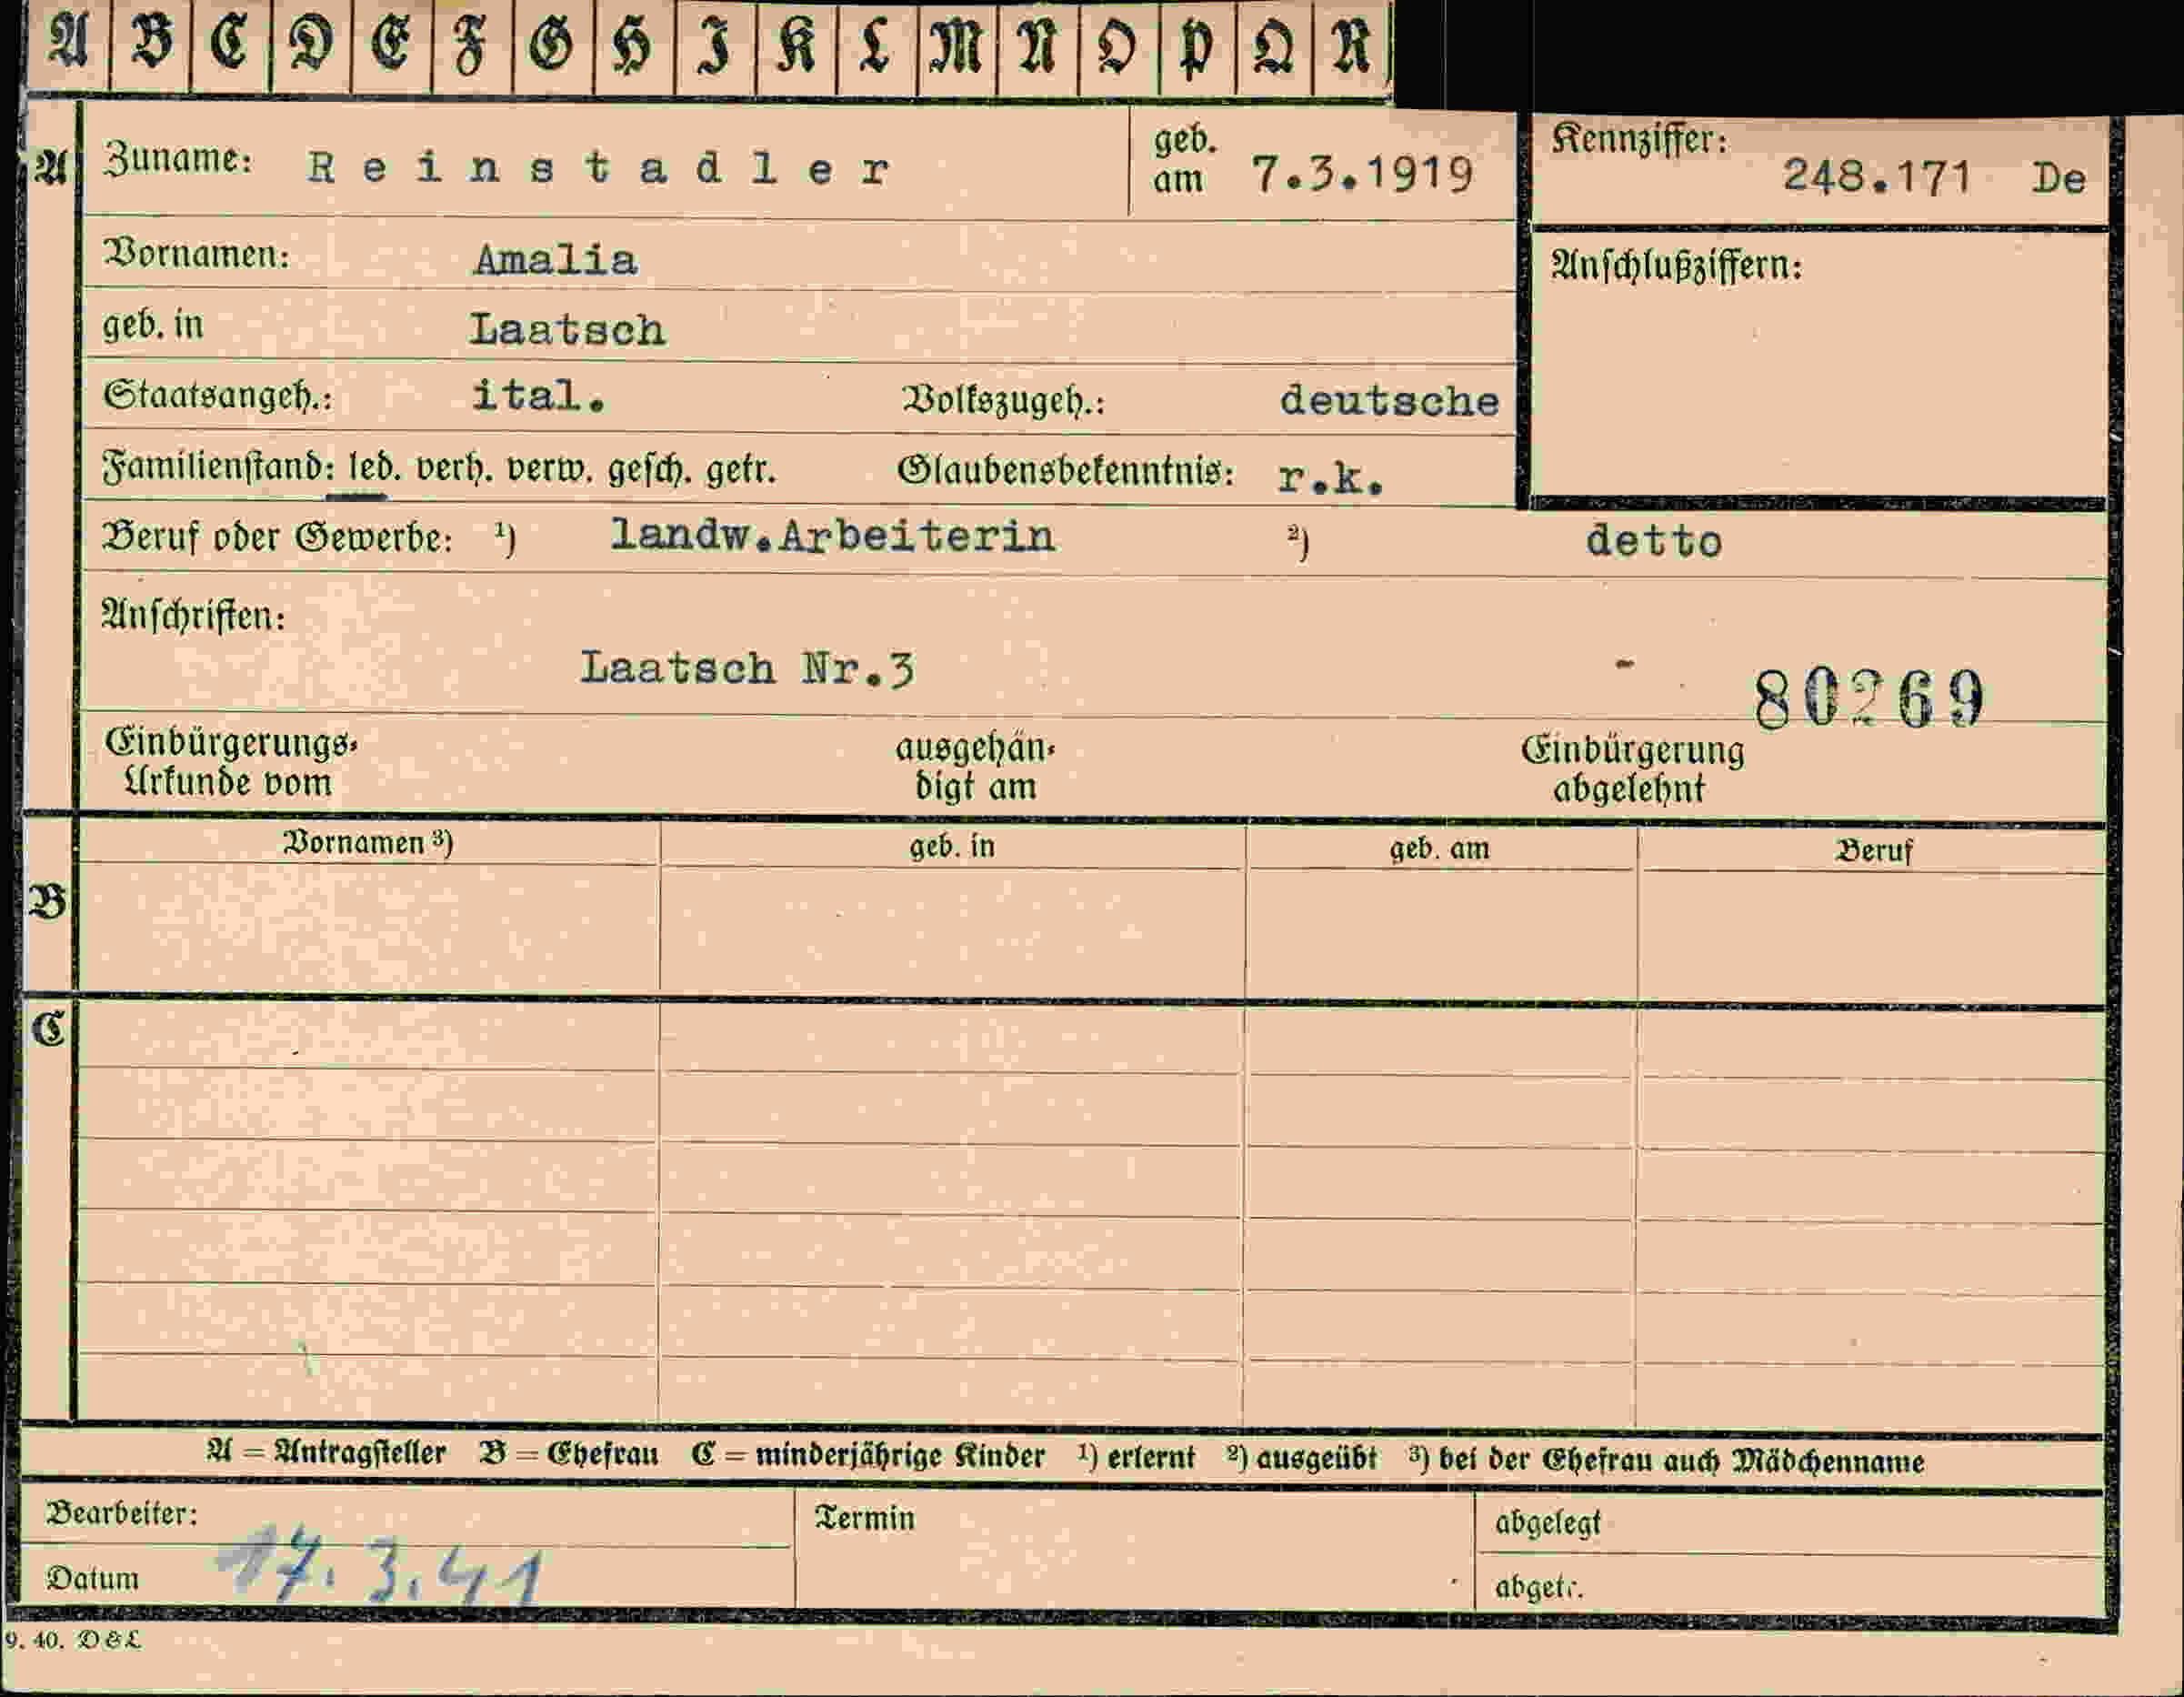 A B C D E F G H I K L M N O P Q R
A Zuname: Reinstadler geb. am 7.3.1919 Kennziffer: 248.171 De
Vornamen: Amalia Anschlußziffern:
geb. in Laatsch
Staatsangeh.: ital. Volkszugeh.: deutsche
Familienstand: led. verh. verw. gesch. getr. Glaubensbekenntnis: r.k.
Beruf oder Gewerbe: ¹) landw.Arbeiterin ²) detto
Anschriften:
Laatsch Nr.3 - 80269
Einbürgerungs- ausgehän- Einbürgerung
Urkunde vom digt am abgelehnt
Vornamen ³) geb. in geb. am Beruf
B
C
A = Antragsteller B = Ehefrau C = minderjährige Kinder ¹) erlernt ²) ausgeübt ³) bei der Ehefrau auch Mädchenname
Bearbeiter: Termin abgelegt
Datum 17.3.41 abgetr.
9. 40. D & L